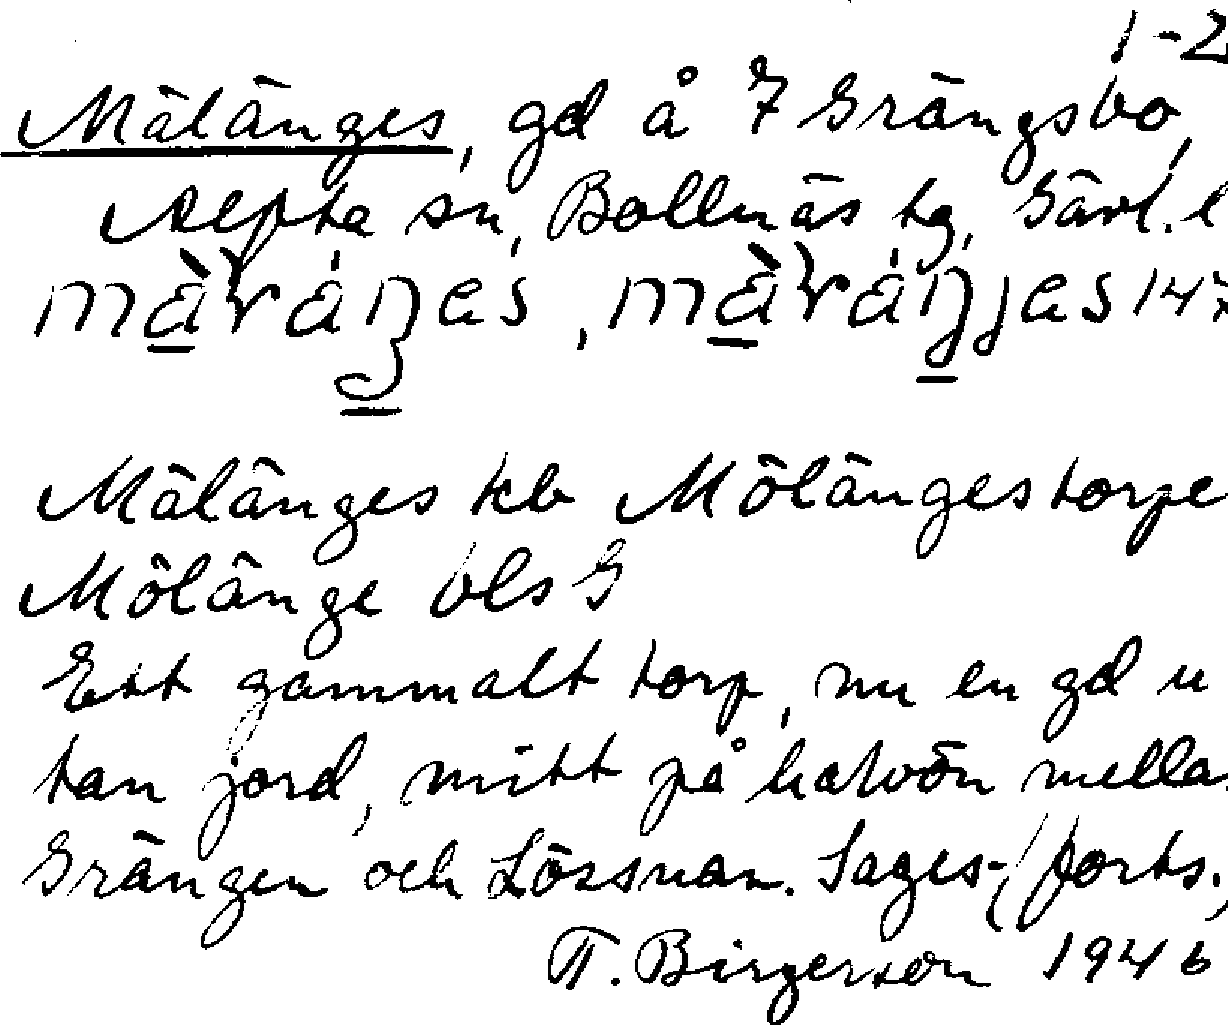 1-2
Mälänges, gd å 7 Grängsbo,
Alfta sn, Bollnäs tg, Gävl. l
147
Mälänges kb Mölängestorpe
Mölänge bls G
Ett gammalt torp, nu en gd u
tan jord, mitt på halvön mella
Grängen och Lössnan. Sages- (forts.)
T. Birgerson 1946